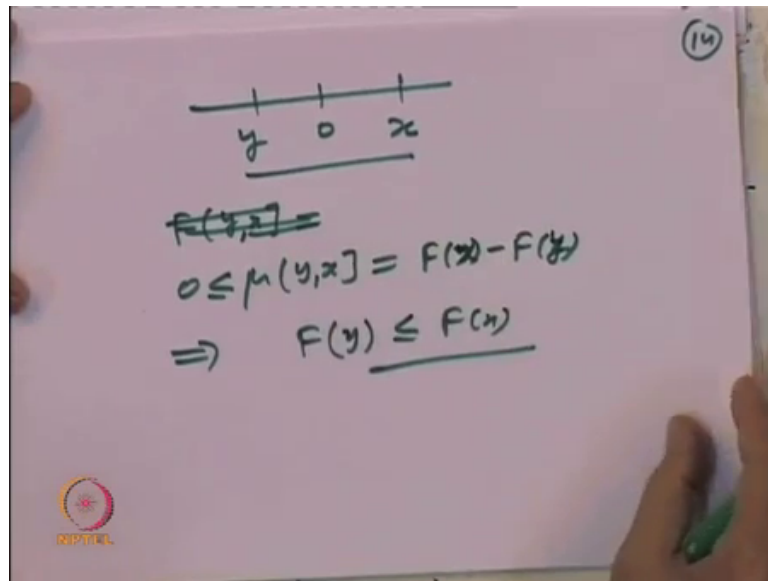 14
y 0 x
F(y,x] =
0 ≤ μ(y,x] = F(x) - F(y)
⇒ F(y) ≤ F(x)
NPTEL